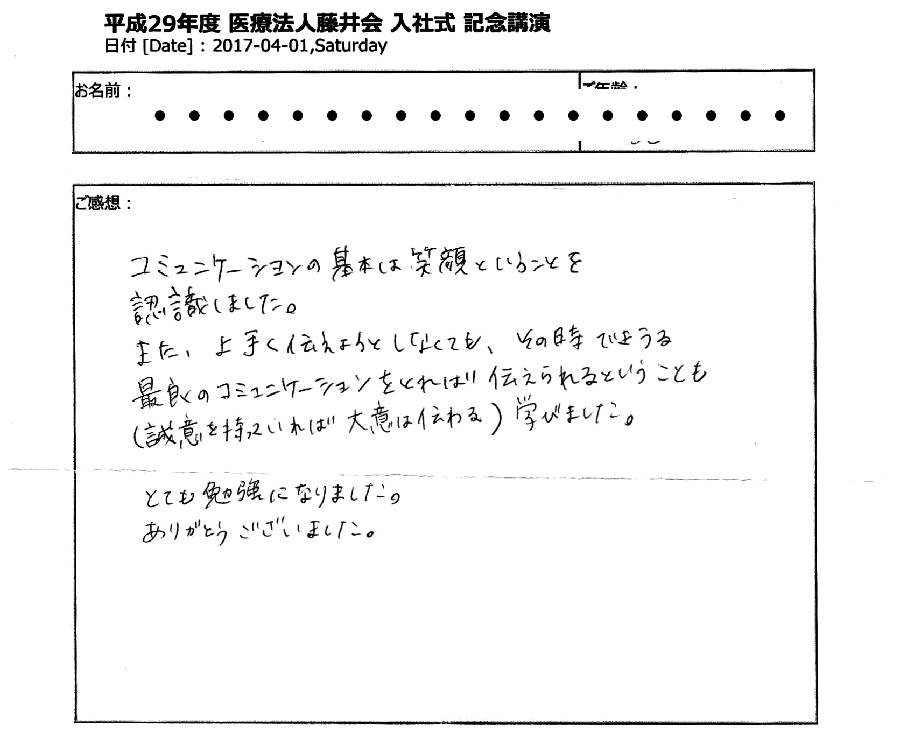 平成29年度 医療法人藤井会 入社式 記念講演
日付 [Date] : 2017-04-01,Saturday
お名前：
ご年齢：
ご感想：
コミュニケーションの基本は笑顔ということを
認識しました。
また、上手く伝えようとしなくても、その時できうる
最良のコミュニケーションをとれば伝えられるということも
(誠意を持っていれば大意は伝わる)学びました。
とても勉強になりました。
ありがとうございました。